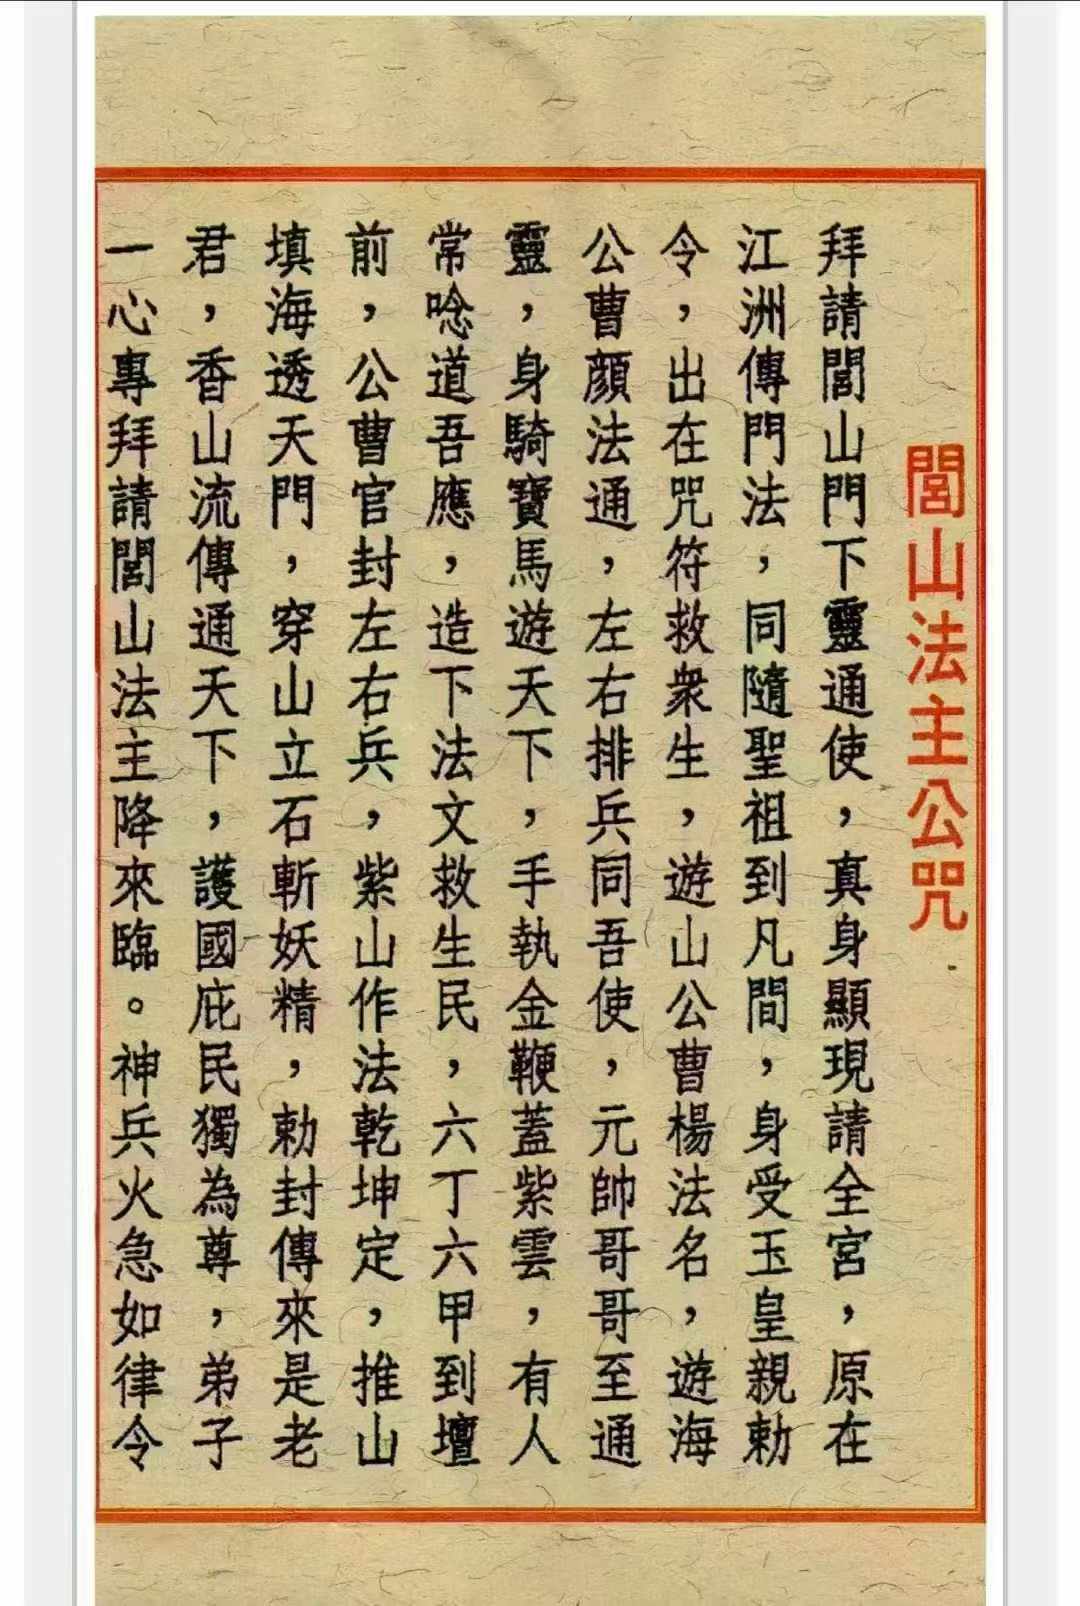 閭山法主公咒
拜請閭山門下靈通使，真身顯現請全宮，原在
江洲傳門法，同隨聖祖到凡間，身受玉皇親勅
令，出在咒符救衆生，遊山公曹楊法名，遊海
公曹顏法通，左右排兵同吾使，元帥哥哥至通
靈，身騎寶馬遊天下，手執金鞭蓋紫雲，有人
常唸道吾應，造下法文救生民，六丁六甲到壇
前，公曹官封左右兵，紫山作法乾坤定，推山
填海透天門，穿山立石斬妖精，勅封傳來是老
君，香山流傳通天下，護國庇民獨為尊，弟子
一心專拜請閭山法主降來臨。神兵火急如律令